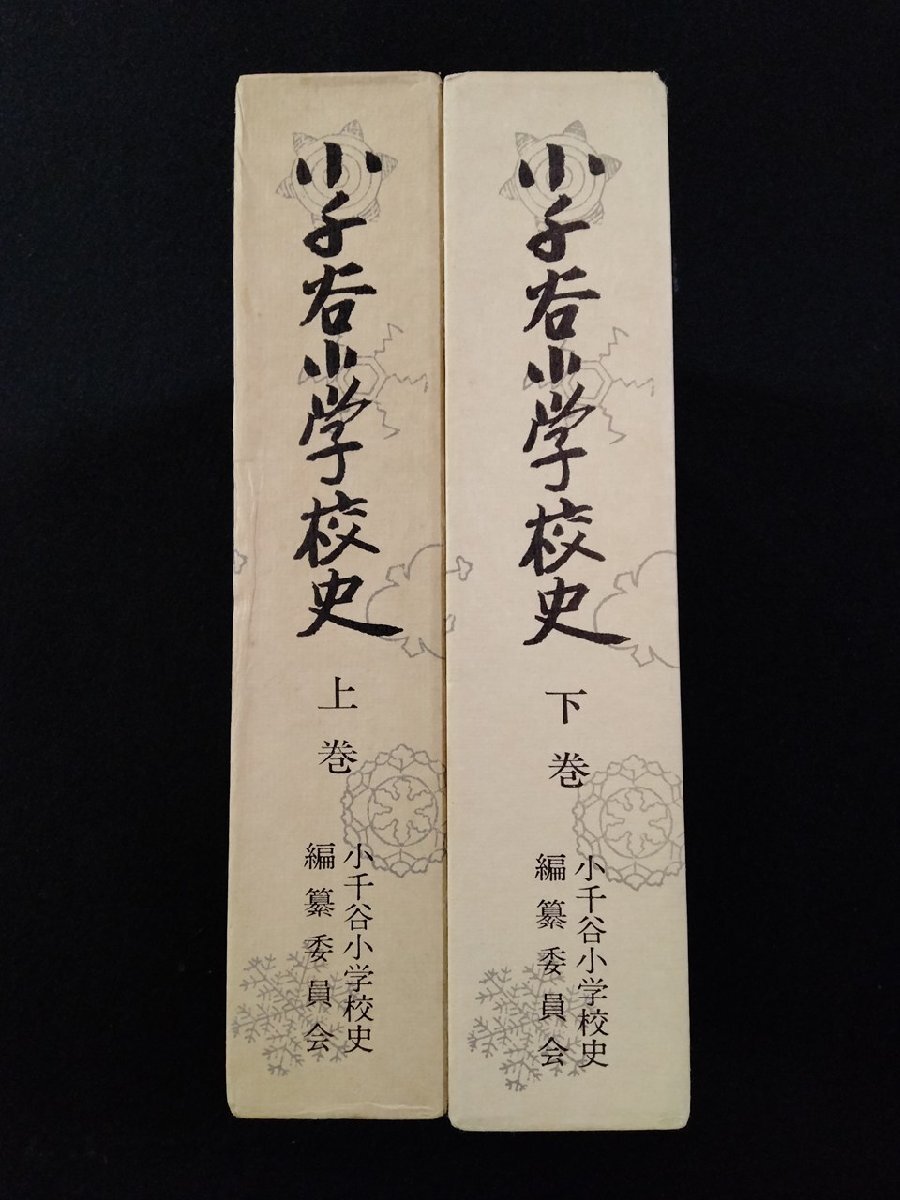 小千谷小学校史
上巻
小千谷小学校史
編纂委員会
小千谷小学校史
下巻
小千谷小学校史
編纂委員会